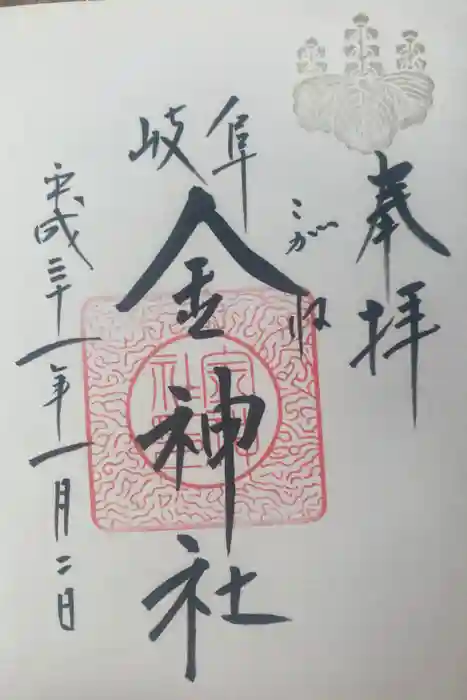 奉拝
こがね
岐阜
金神社
平成三十一年一月二日